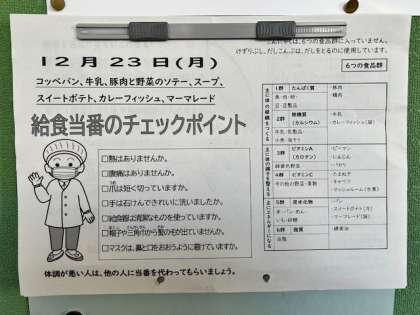 こんにゃくは、6つの食品群に入っていません。
けずりぶし、だしこんぶは、だしをとるのに使用しています。
12月23日(月)
コッペパン、牛乳、豚肉と野菜のソテー、スープ、
スイートポテト、カレーフィッシュ、マーマレード
給食当番のチェックポイント
□熱はありませんか。
□腹痛はありませんか。
□爪は短く切っていますか。
□手は石けんできれいに洗いましたか。
□給食着は清潔なものを使っていますか。
□帽子や三角巾から髪の毛が出ていませんか。
□マスクは、鼻と口をおおうように着けていますか。
体調が悪い人は、他の人に当番を代わってもらいましょう。
6つの食品群
1群 たんぱく質
魚・肉・卵・
豆・豆製品
・豚肉
・鶏肉
2群 無機質
(カルシウム)
牛乳・乳製品・
小魚・海そう
・牛乳
・カレーフィッシュ(袋)
3群 ビタミンA
(カロテン)
緑黄色野菜
・ピーマン
・にんじん
・パセリ
4群 ビタミンC
その他の野菜・果物
・たまねぎ
・キャベツ
・マッシュルーム(水煮)
5群 炭水化物
米・パン・めん・
いも・砂糖
・パン
・スイートポテト(月)
・マーマレード(袋)
6群 脂質
油脂
・綿実油